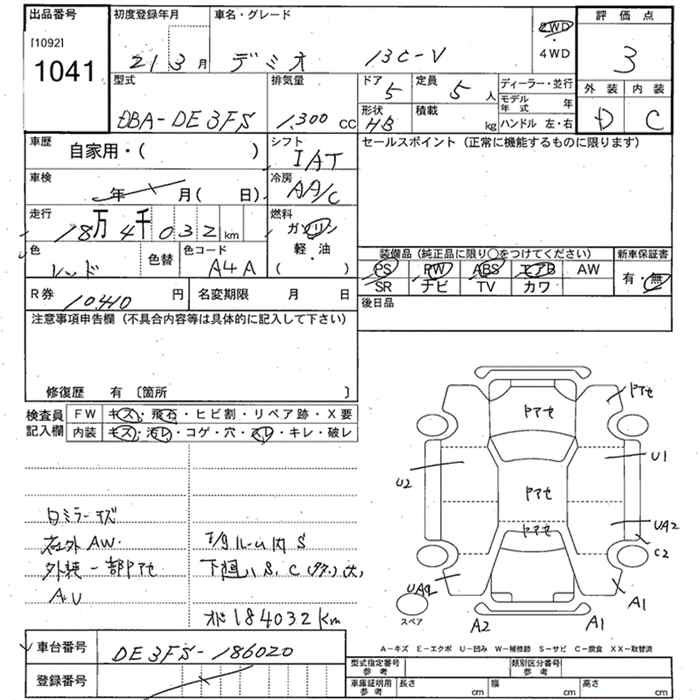 出品番号 初度登録年月 車名・グレード 評価点
[1092]
1041
21 3月 デミオ 13C-V 2WD
4WD 3
型式 排気量 ドア 定員 ディーラー・並行
外装 内装
DBA-DE3FS 1,300 CC 5 5人 モデル年式 年
形状 積載
HB kg ハンドル 左・右 D C
車歴 自家用・( ) シフト IAT セールスポイント（正常に機能するものに限ります）
車検 年 月( 日) 冷房 AA/C
走行 18万4千032km 燃料 ガソリン
軽・油
( )
色 レッド 色替 色コード A4A
装備品（純正品に限り〇をつけてください） 新車保証書
PS PW ABS エアB AW 有・無
SR ナビ TV カワ
R券 10410円 名変期限 月 日 後日品
注意事項申告欄（不具合内容等は具体的に記入して下さい）
修復歴 有〔箇所 〕
検査員記入欄 FW キズ・飛石・ヒビ割・リペア跡・X要
内装 キズ・汚レ・コゲ・穴・スレ・キレ・破レ
ミラーキズ
社外AW.
外装一部ヤケ
AU
ルーム内S
下廻りS,C
184032Km
車台番号 DE3FS-186020
登録番号
U2 U1 UA2 C2 A1 A1 A2
スペア
A-キズ E-エクボ U-凹み W-補修跡 S-サビ C-腐食 XX-取替済
型式指定番号 参考 類別区分番号 参考
車庫証明用 参考 長さ cm 幅 cm 高さ cm